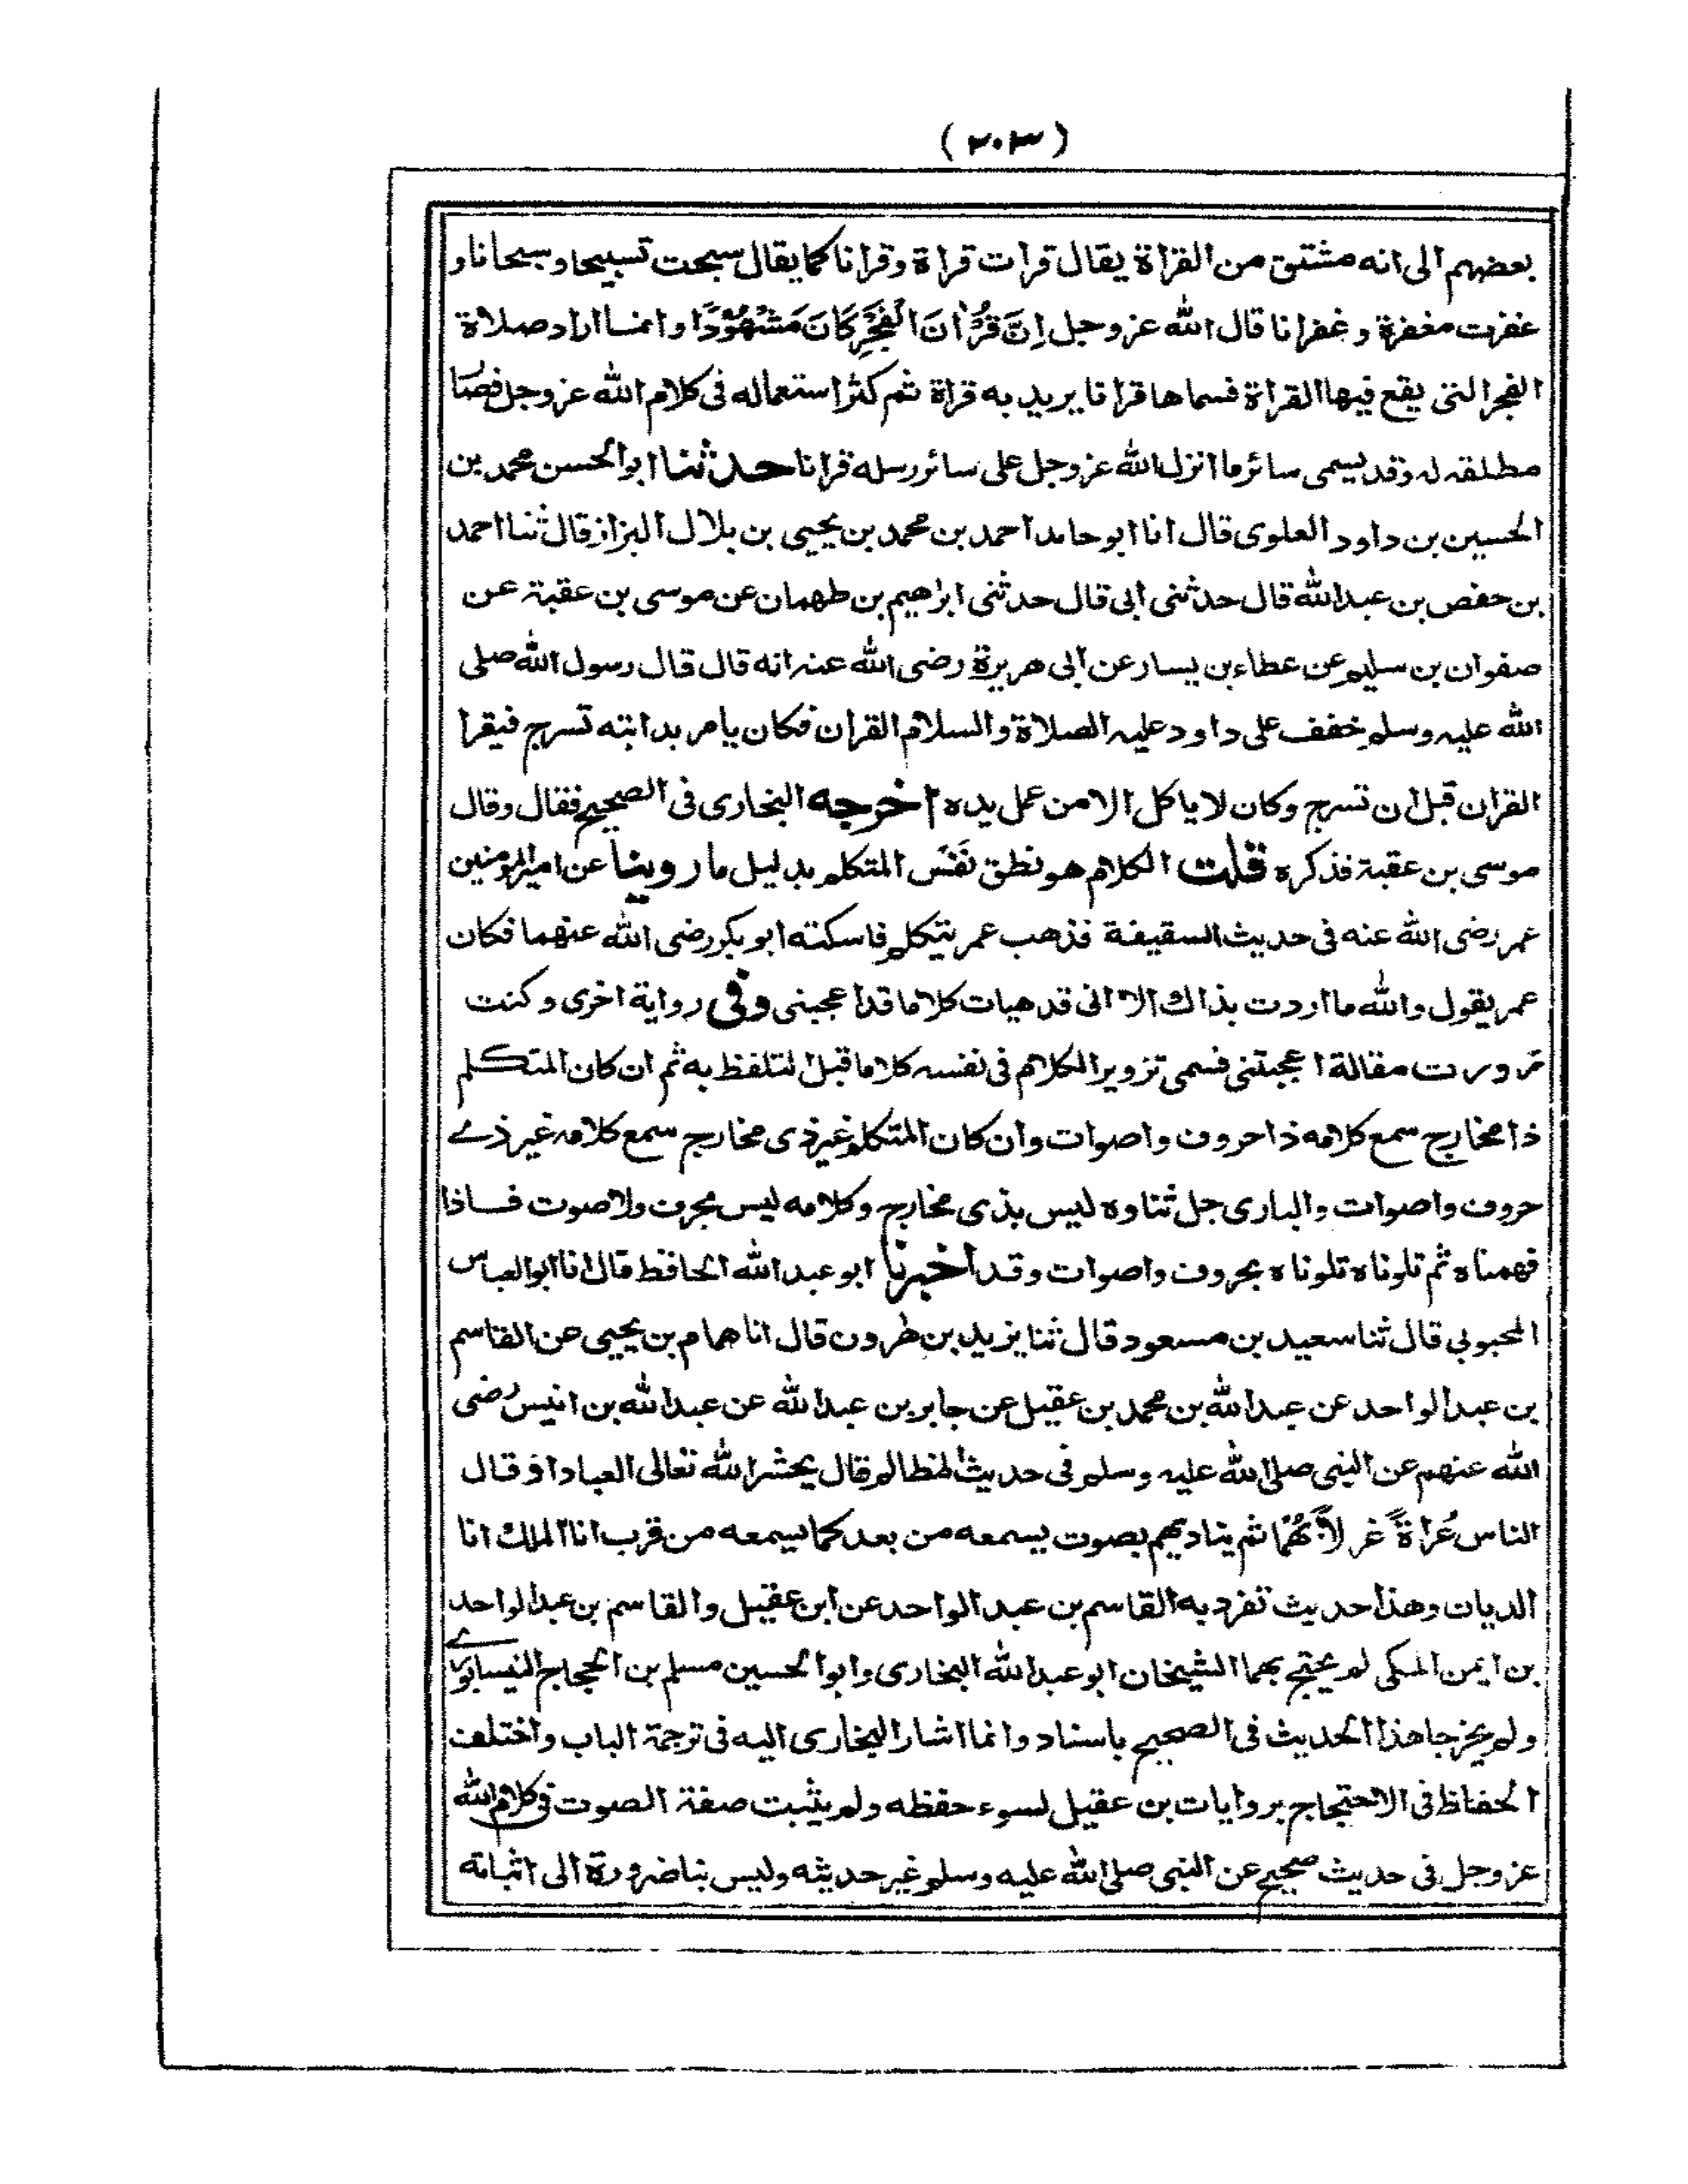 (٢٠٣)
بعضهم الى انه مشتق من القراة يقال قرات قراة وقرانا كما يقال سبحت تسبيحا وسبحانا و
غفرت مغفرة وغفرانا قال الله عزوجل اِنَّ قُرْاٰنَ الْفَجْرِ كَانَ مَشْهُوْدًا وانما اراد صلاة
الفجر التى يقع فيها القراة فسماها قرانا يريد به قراة ثم كثر استعماله فى كلام الله عزوجل فصا
مطلقه له وقد يسمى سائر ما انزل الله عزوجل على سائر رسله قرانا حدثنا ابو الحسن محمد بن
الحسين بن داود العلوى قال انا ابو حامد احمد بن محمد بن يحيى بن بلال البزاز قال ثنا احمد
بن حفص بن عبدالله قال حدثنى ابى قال حدثنى ابراهيم بن طهمان عن موسى بن عقبة عن
صفوان بن سليم عن عطاء بن يسار عن ابى هريرة رضى الله عنه انه قال قال رسول الله صلى
الله عليه وسلم خفف على داود عليه الصلاة والسلام القران فكان يامر بدابته تسرج فيقرا
القران قبل ان تسرج وكان لا ياكل الا من عمل يده اخرجه البخارى فى الصحيح فقال وقال
موسى بن عقبة فذكره قلت الكلام هو نطق نَفَس المتكلم بدليل ما روينا عن امير المومنين
عمر رضى الله عنه فى حديث السقيفة فذهب عمر يتكلم فاسكته ابو بكر رضى الله عنهما فكان
عمر يقول والله ما اردت بذاك الا انى قد هيات كلاما قد اعجبنى وفى رواية اخرى وكنت
زورت مقالة اعجبتنى فسمى تزوير الكلام فى نفسه كلاما قبل التلفظ به ثم ان كان المتكلم
ذا مخارج سمع كلامه ذا حروف واصوات وان كان المتكلم غير ذى مخارج سمع كلامه غير ذے
حروف واصوات والبارى جل ثناوه ليس بذى مخارج وكلامه ليس بحرف ولا صوت فاذا
فهمناه ثم تلوناه تلوناه بحروف واصوات وقد اخبرنا ابو عبد الله الحافظ قال انا ابو العباس
المحبوبى قال ثنا سعيد بن مسعود قال ثنا يزيد بن هرون قال انا همام بن يحيى عن القاسم
بن عبد الواحد عن عبد الله بن محمد بن عقيل عن جابر بن عبد الله عن عبد الله بن انيس رضى
الله عنهم عن النبى صلى الله عليه وسلم فى حديث المظالم قال يحشر الله تعالى العباد او قال
الناس عُراةً غرلاً بُهْمًا ثم يناديهم بصوت يسمعه من بعد كما يسمعه من قرب انا الملك انا
الديان وهذا حديث تفرد به القاسم بن عبد الواحد عن ابن عقيل والقاسم بن عبد الواحد
بن ايمن المكى لم يحتج بهما الشيخان ابو عبد الله البخارى وابو الحسين مسلم بن الحجاج النيسابورے
ولم يخرجا هذا الحديث فى الصحيح باسناد وانما اشار البخارى اليه فى ترجمة الباب واختلف
الحفاظ فى الاحتجاج بروايات بن عقيل لسوء حفظه ولم يثبت صفة الصوت فى كلام الله
عزوجل فى حديث صحيح عن النبى صلى الله عليه وسلم غير حديثه وليس بنا ضرورة الى اثباته